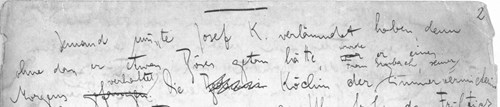 2
Jemand mußte Josef K. verläumdet haben, denn
ohne daß er etwas Böses getan hätte, wurde er eines
Morgens verhaftet. Die Köchin der Zimmervermieterin